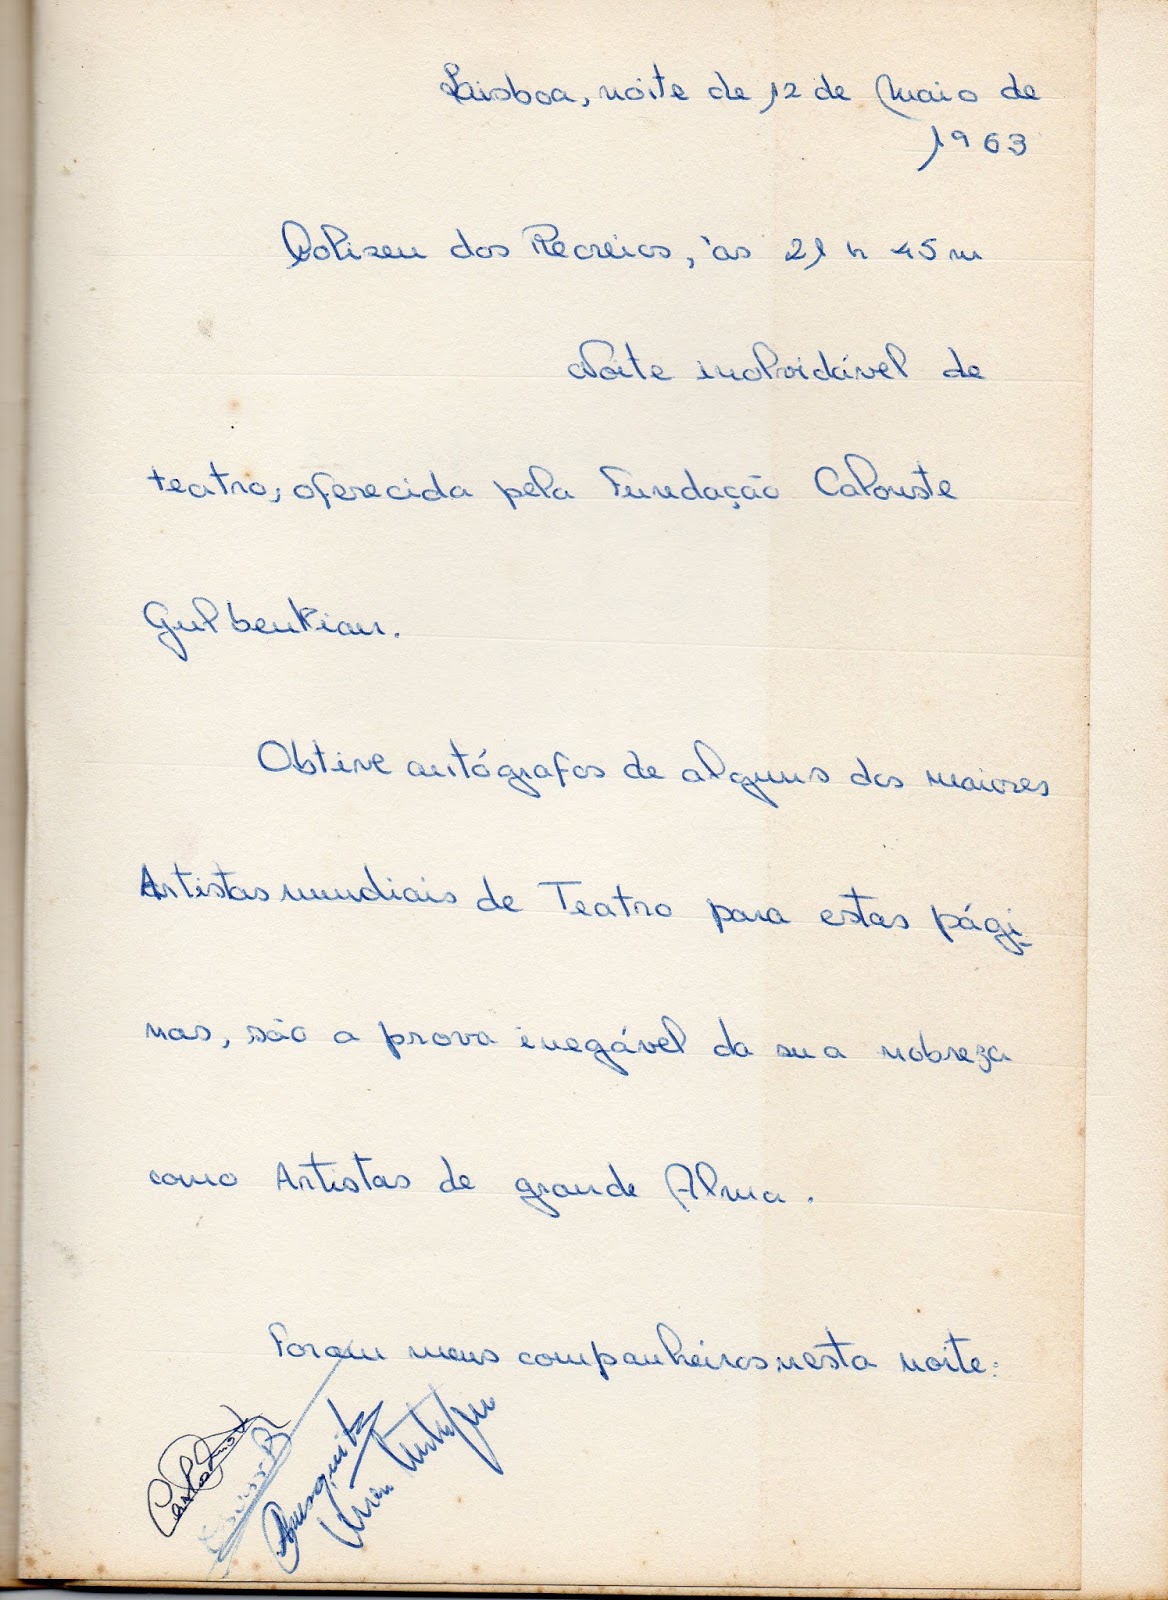 Lisboa, noite de 12 de Maio de
1963
Colizeu dos Recreios, às 21 h 45 m
Noite inolvidável de
teatro, oferecida pela Fundação Calouste
Gulbenkian.
Obtive autógrafos de alguns dos maiores
Artistas mundiais de Teatro para estas pági-
nas, são a prova inegável da sua nobreza
como Artistas de grande Alma.
Foram meus companheiros nesta noite: